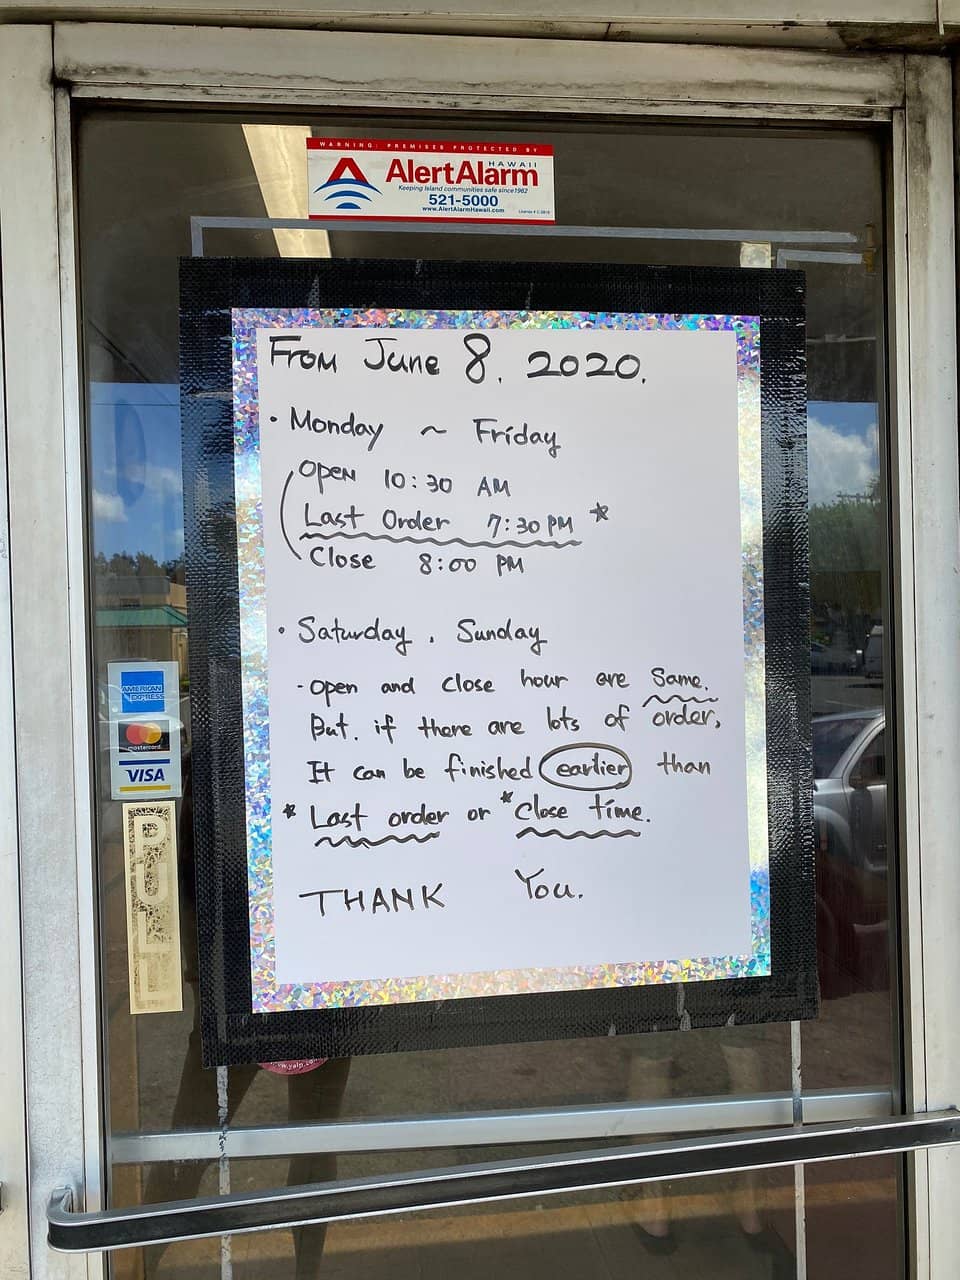 WARNING: PREMISES PROTECTED BY
HAWAII
AlertAlarm
Keeping Island communities safe since 1962
521-5000
www.AlertAlarmHawaii.com
From June 8. 2020.
• Monday ~ Friday
Open 10:30 AM
Last Order 7:30 PM *
Close 8:00 PM
• Saturday, Sunday
- Open and close hour are Same.
But. if there are lots of order,
It can be finished earlier than
* Last order or * Close time.
THANK You.
AMERICAN
EXPRESS
mastercard
VISA
PULL
www.yelp.com